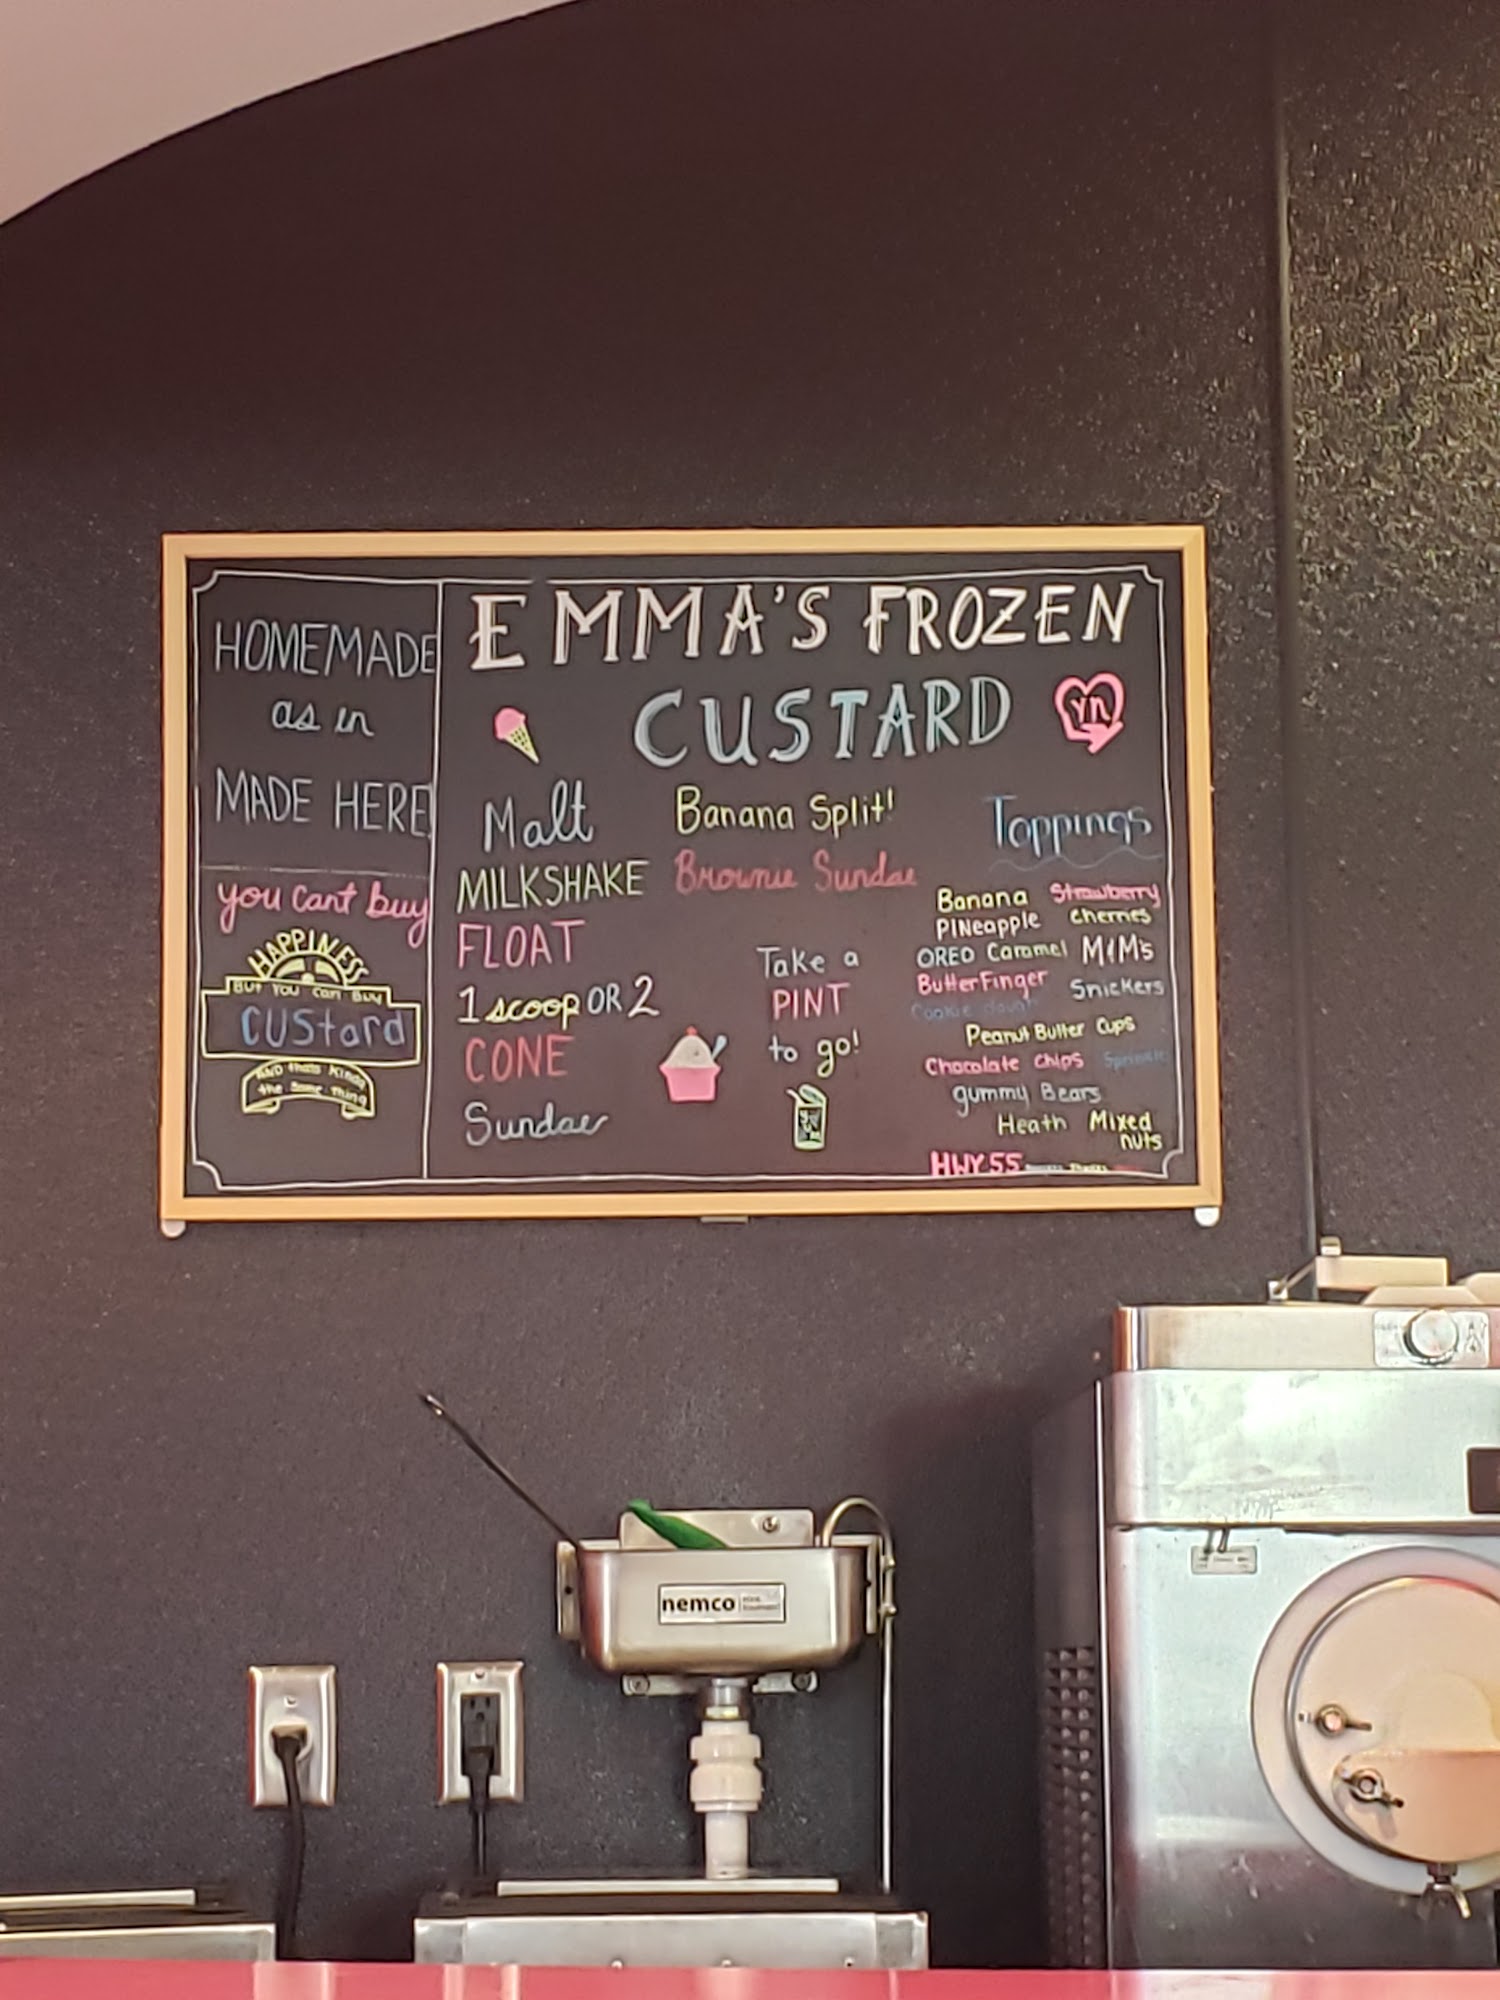 HOMEMADE
as in
MADE HERE
you cant buy
HAPPINESS
BUT YOU Can BUY
CUStard
AND thats Kinda
the Same Thing
EMMA'S FROZEN
CUSTARD
Malt
MILKSHAKE
FLOAT
1 scoop OR 2
CONE
Sundae
Banana Split!
Brownie Sundae
Take a
PINT
to go!
Toppings
Banana Strawberry
PINeapple cherries
OREO Caramel M&M's
ButterFinger Snickers
Cookie dough
Peanut Butter Cups
Chocolate chips Sprinkles
gummy Bears
Heath Mixed
nuts
HWY 55
nemco